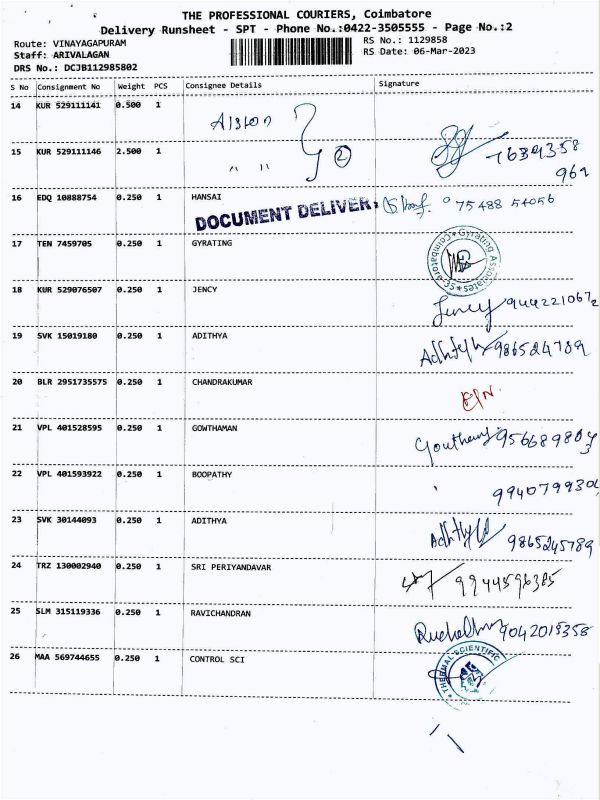 THE PROFESSIONAL COURIERS, Coimbatore
Delivery Runsheet - SPT - Phone No.:0422-3505555 - Page No.:2
Route: VINAYAGAPURAM
Staff: ARIVALAGAN
DRS No.: DCJB112985802
RS No.: 1129858
RS Date: 06-Mar-2023
S No Consignment No Weight PCS Consignee Details Signature
14 KUR 529111141 0.500 1
15 KUR 529111146 2.500 1 " " 2
16 EDQ 10888754 0.250 1 HANSAI 75488 54056
DOCUMENT DELIVER
17 TEN 7459705 0.250 1 GYRATING
Gyrating Associates
18 KUR 529076507 0.250 1 JENCY Jency
19 SVK 15019180 0.250 1 ADITHYA
20 BLR 2951735575 0.250 1 CHANDRAKUMAR
21 VPL 401528595 0.250 1 GOWTHAMAN
22 VPL 401593922 0.250 1 BOOPATHY
23 SVK 30144093 0.250 1 ADITHYA 9865245789
24 TRZ 130002940 0.250 1 SRI PERIYANDAVAR 9944596385
25 SLM 315119336 0.250 1 RAVICHANDRAN 9042019358
26 MAA 569744655 0.250 1 CONTROL SCI
THERMAL SCIENTIFIC